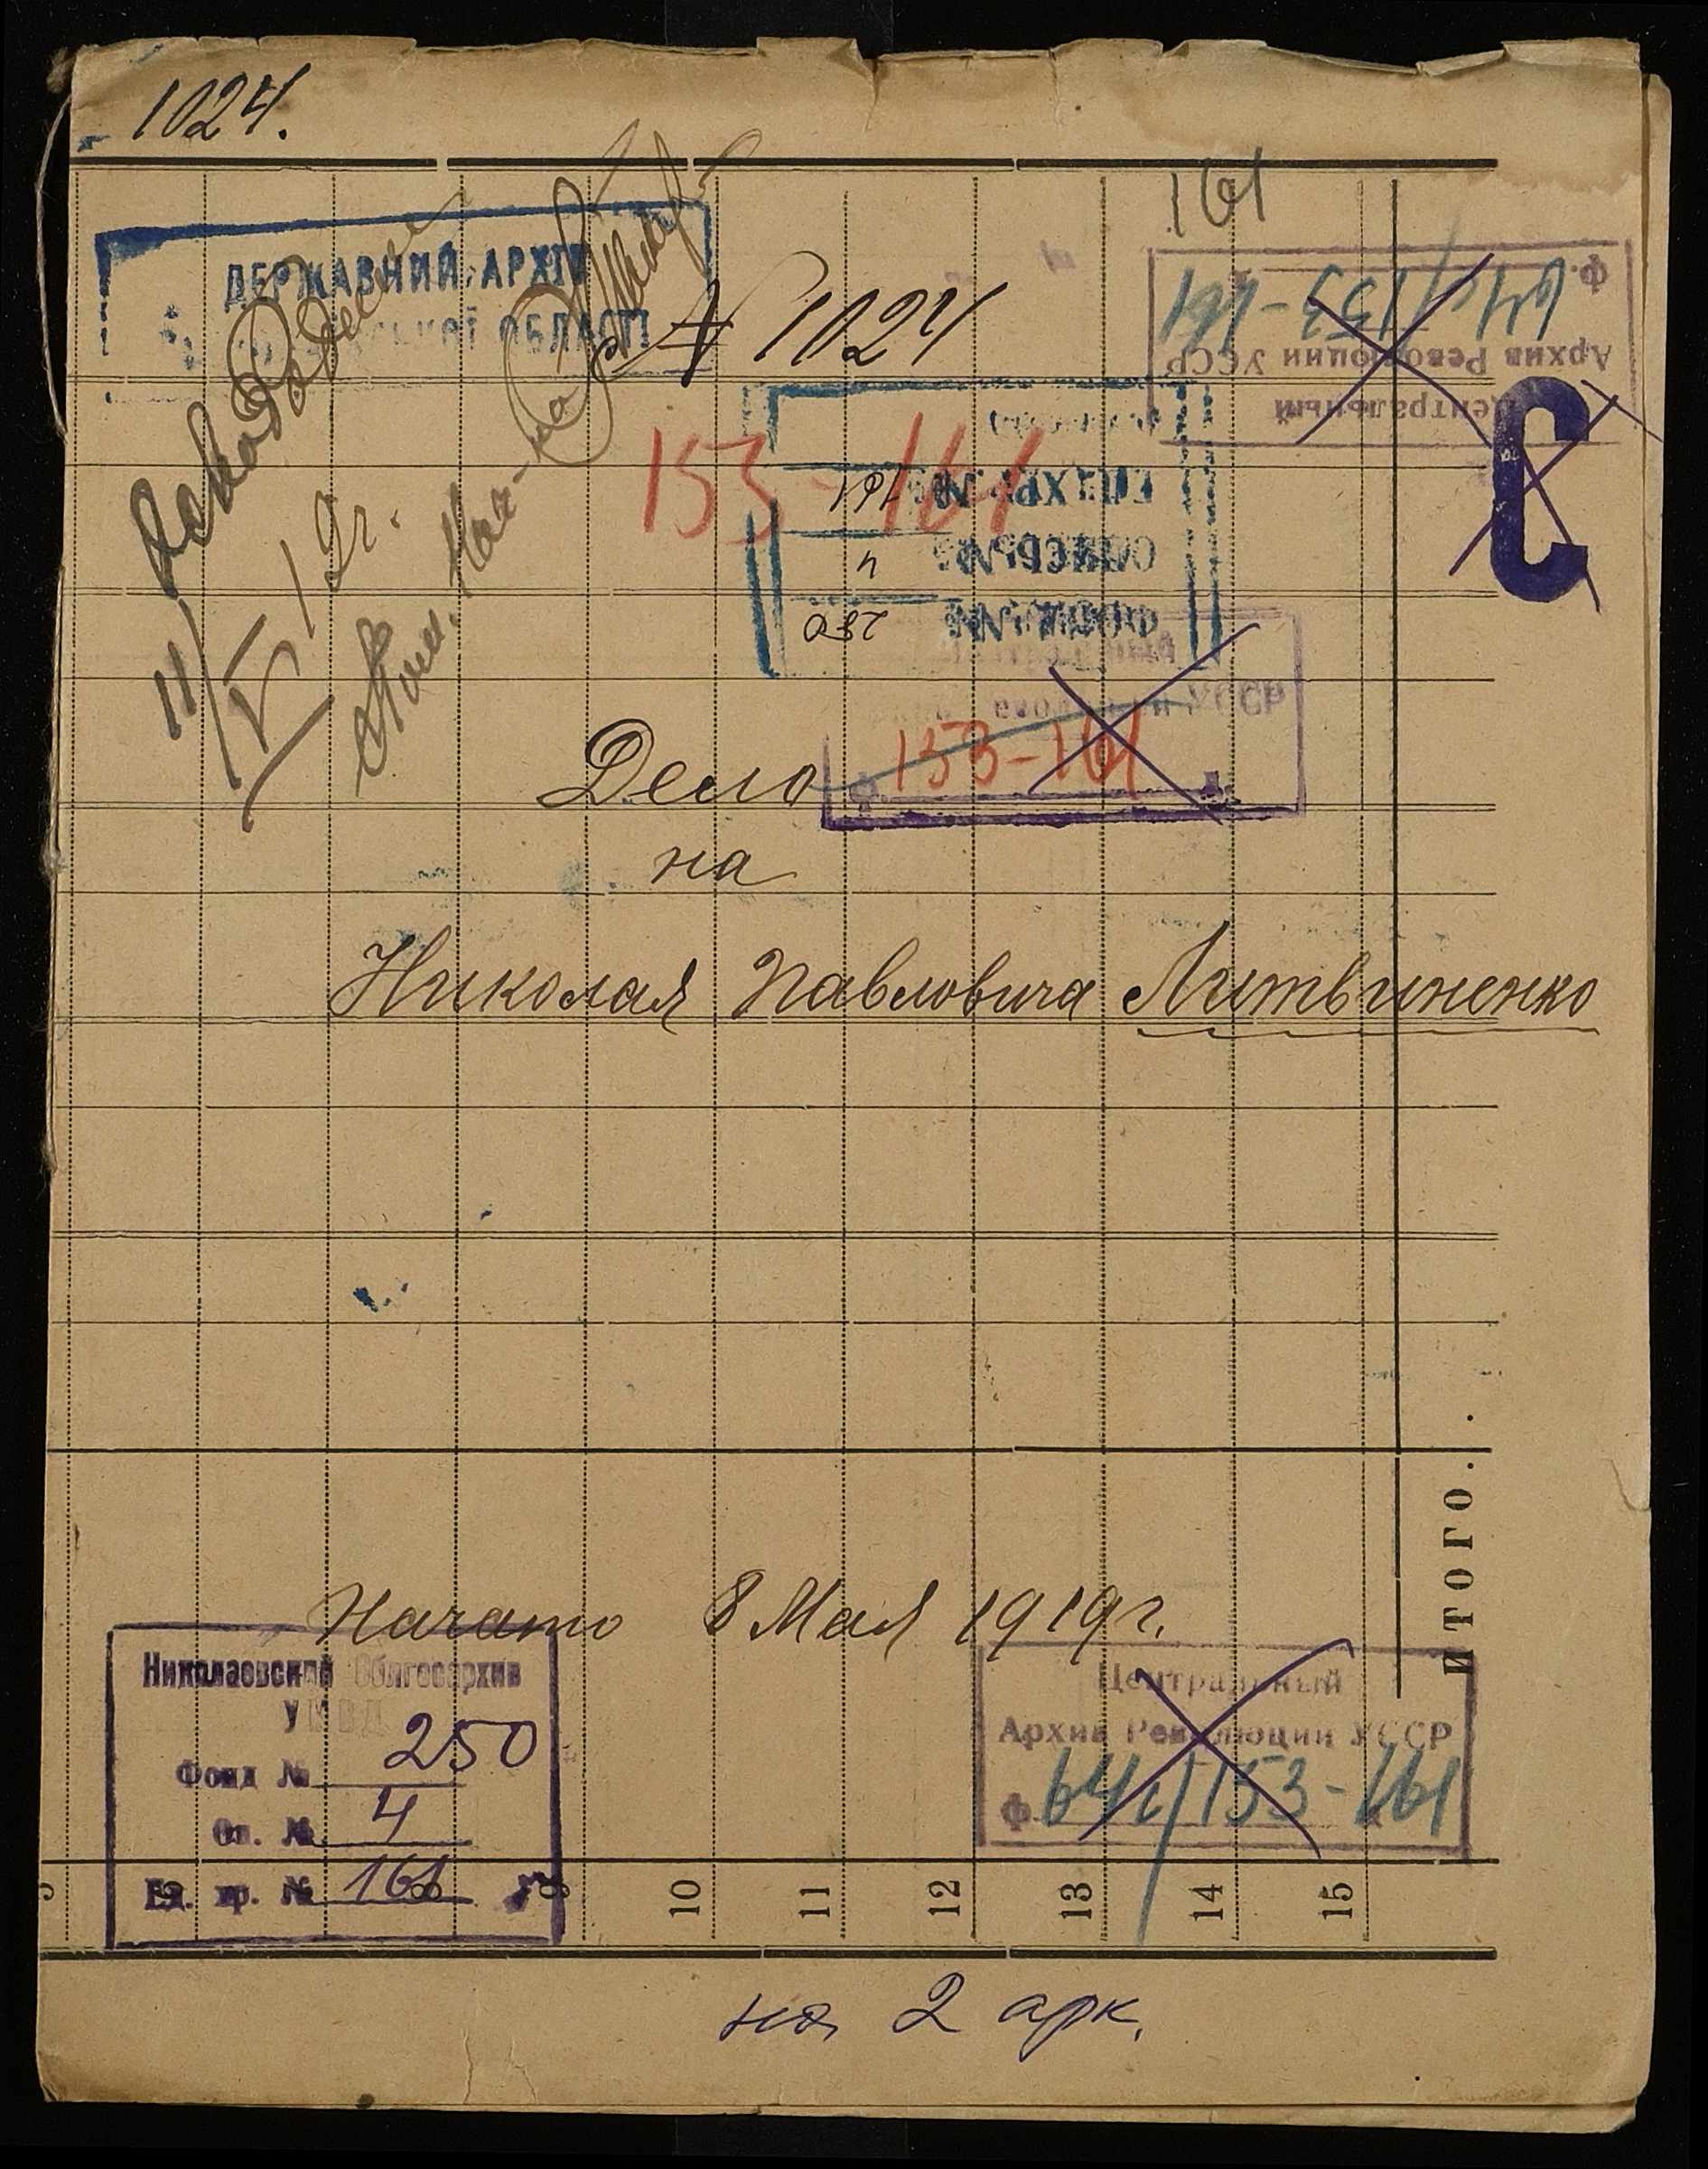 1024.
161
ДЕРЖАВНИЙ АРХІВ
ОБЛАСТІ
№ 1024
Ф. 64ч/153-161
Архив Революции УССР
Центральный
С
153-161
ЕД. ХР. № 161
ОПИСЬ № 4
ФОНД № 250
11/V 19г.
УССР
153-161
Дело
на
Николая Павловича Литвиненко
ИТОГО . .
Начато 8 Мая 1919 г.
Николаевский Облгосархив
УМВД
Фонд № 250
Оп. № 4
Ед. хр. № 161
Центральный
Архив Революции УССР
Ф. 64ч/153-161
9 10 11 12 13 14 15
на 2 арк.